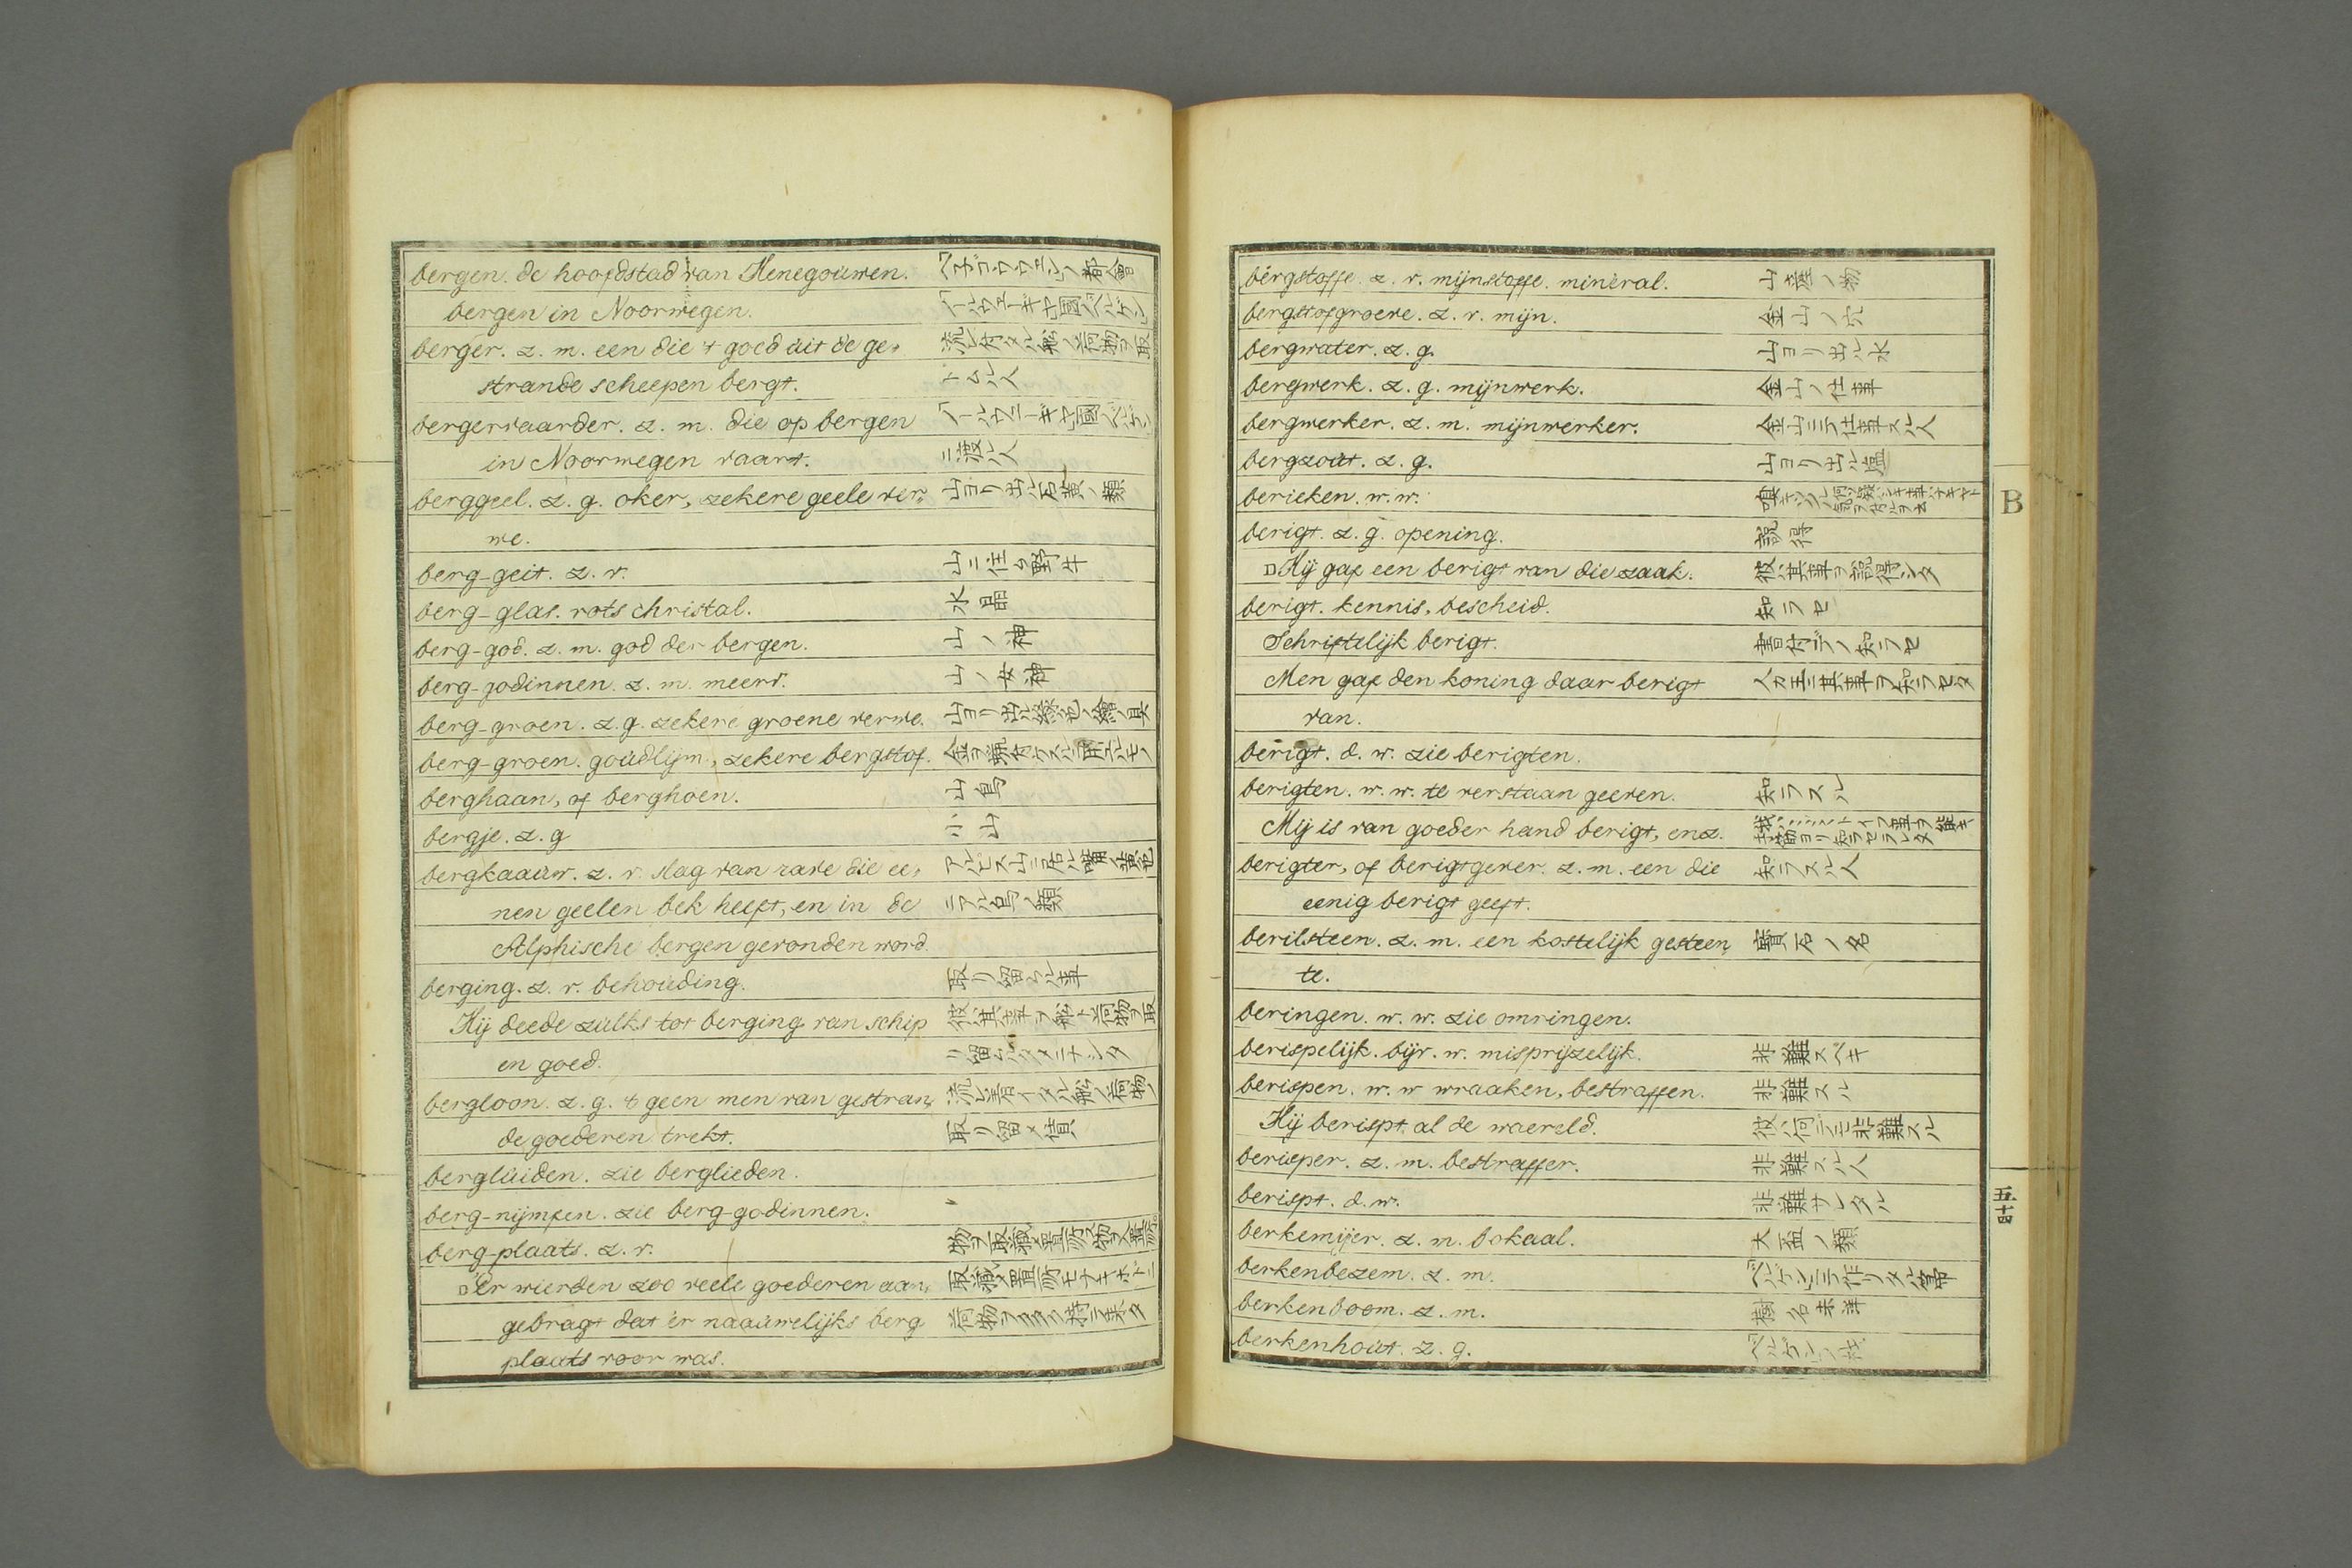 bergen. de hoofdstad van Henegouwen. ヘネゴウウェンノ都會
bergen in Noorwegen.
berger. z. m. een die 't goed uit de ge- 流レ付タル舩ノ荷物ヲ取
strande scheepen bergt. トムル人
bergervaarder. z. m. die op bergen
in Noorwegen vaart. ニ渡ル人
berggeel. z. g. oker, zekere geele ver- 山ヨリ出ル石黄ノ類
we.
berg-geit. z. v. 山ニ住ム野牛
berg-glas. rots christal. 水晶
berg-god. z. m. god der bergen. 山ノ神
berg-godinnen. z. m. meerv. 山ノ女神
berg-groen. z. g. zekere groene verwe. 山ヨリ出ル緑色ノ繪ノ具
berg-groen. goudlijm, zekere bergstof.
berghaan, of berghoen. 山鳥
bergje. z. g 小山
bergkaauw. z. v. slag van rave die ee-
nen geelen bek heeft, en in de ニアル鳥ノ類
Alphische bergen gevonden word.
berging. z. v. behouding. 取リ留ムル事
Hij deede zulks tot berging van schip 彼ハ其事ヲ舩ト荷物ヲ取
en goed. リ留ムル為メニナシタ
bergloon. z. g. 't geen men van gestran- 流レ着イタル舩ノ荷物
de goederen trekt. 取リ留メ賃
bergluiden. zie berglieden.
berg-nijmfen. zie berg-godinnen.
berg-plaats. z. v.
□ Er wierden zoo veele goederen aan- 取藏メ置所モナキホドニ
gebragt dat er naauwelijks berg 荷物ヲ多ク持テ来タ
plaats voor was.
bergstoffe. z. v. mijnstoffe. mineral. 山産ノ物
bergstofgroeve. z. v. mijn. 金山ノ穴
bergwater. z. g. 山ヨリ出ル水
bergwerk. z. g. mijnwerk. 金山ノ仕事
bergwerker. z. m. mijnwerker. 金山ニテ仕事スル人
bergzout. z. g. 山ヨリ出ル塩
berieken. w. w.
berigt. z. g. opening. 説得
□ Hij gaf een berigt van die zaak. 彼ハ其事ヲ説得シタ
berigt. kennis, bescheid. 知ラセ
Schriftelijk berigt. 書付デノ知ラセ
Men gaf den koning daar berigt 人カ王ニ其事ヲ知ラセタ
van.
berigt. d. w. zie berigten.
berigten. w. w. te verstaan geeven. 知ラスル
Mij is van goeder hand berigt, enz.
berigter, of berigtgever. z. m. een die 知ラスル人
eenig berigt geeft.
berilsteen. z. m. een kostelijk gesteen- 寳石ノ名
te.
beringen. w. w. zie omringen.
berispelijk. bijv. w. misprijzelijk. 非難スベキ
berispen. w. w wraaken, bestraffen. 非難スル
Hij berispt al de waereld. 彼ハ何ニテモ非難スル
berisper. z. m. bestraffer. 非難スル人
berispt. d. w. 非難サレタル
berkemijer. z. m. bokaal. 大盃ノ類
berkenbezem. z. m. ベルケンニテ作リタル箒
berkenboom. z. m. 樹名未詳
berkenhout. z. g. ベルケンノ材
B
五十四